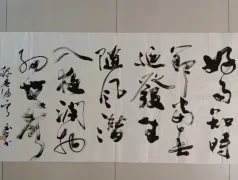 好雨知時
節當春
迺發生
隨風潛
入夜潤物
細無聲